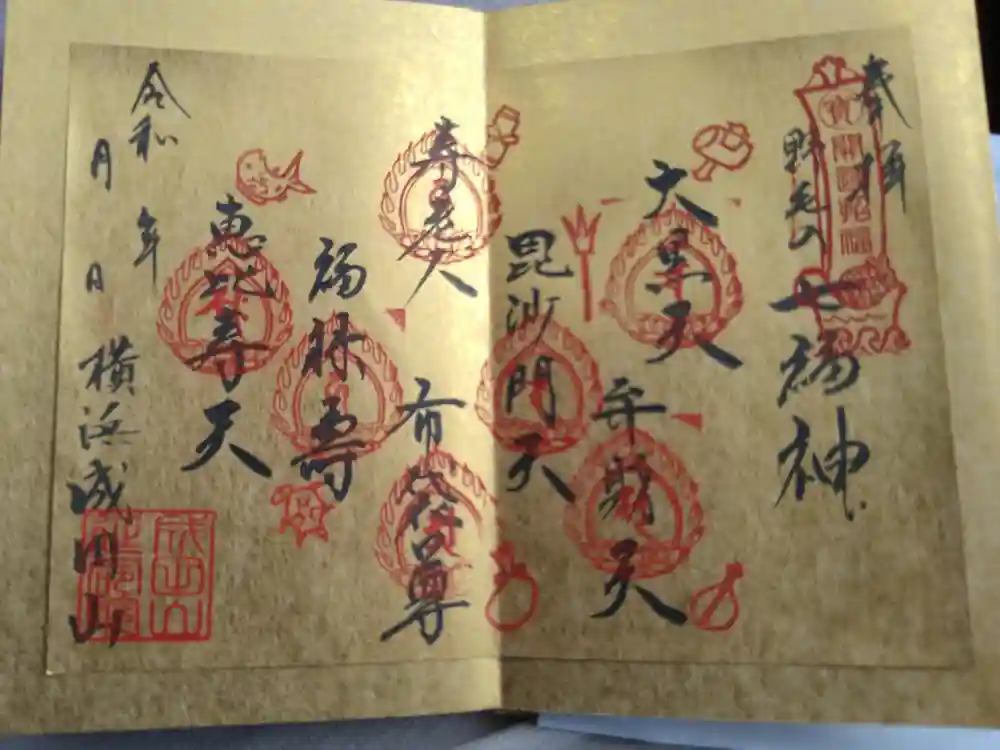 奉拝
野毛の
七福神
大黒天
弁財天
毘沙門天
寿老人
布袋尊
福禄寿
恵比寿天
令和 年
月 日
横浜成田山